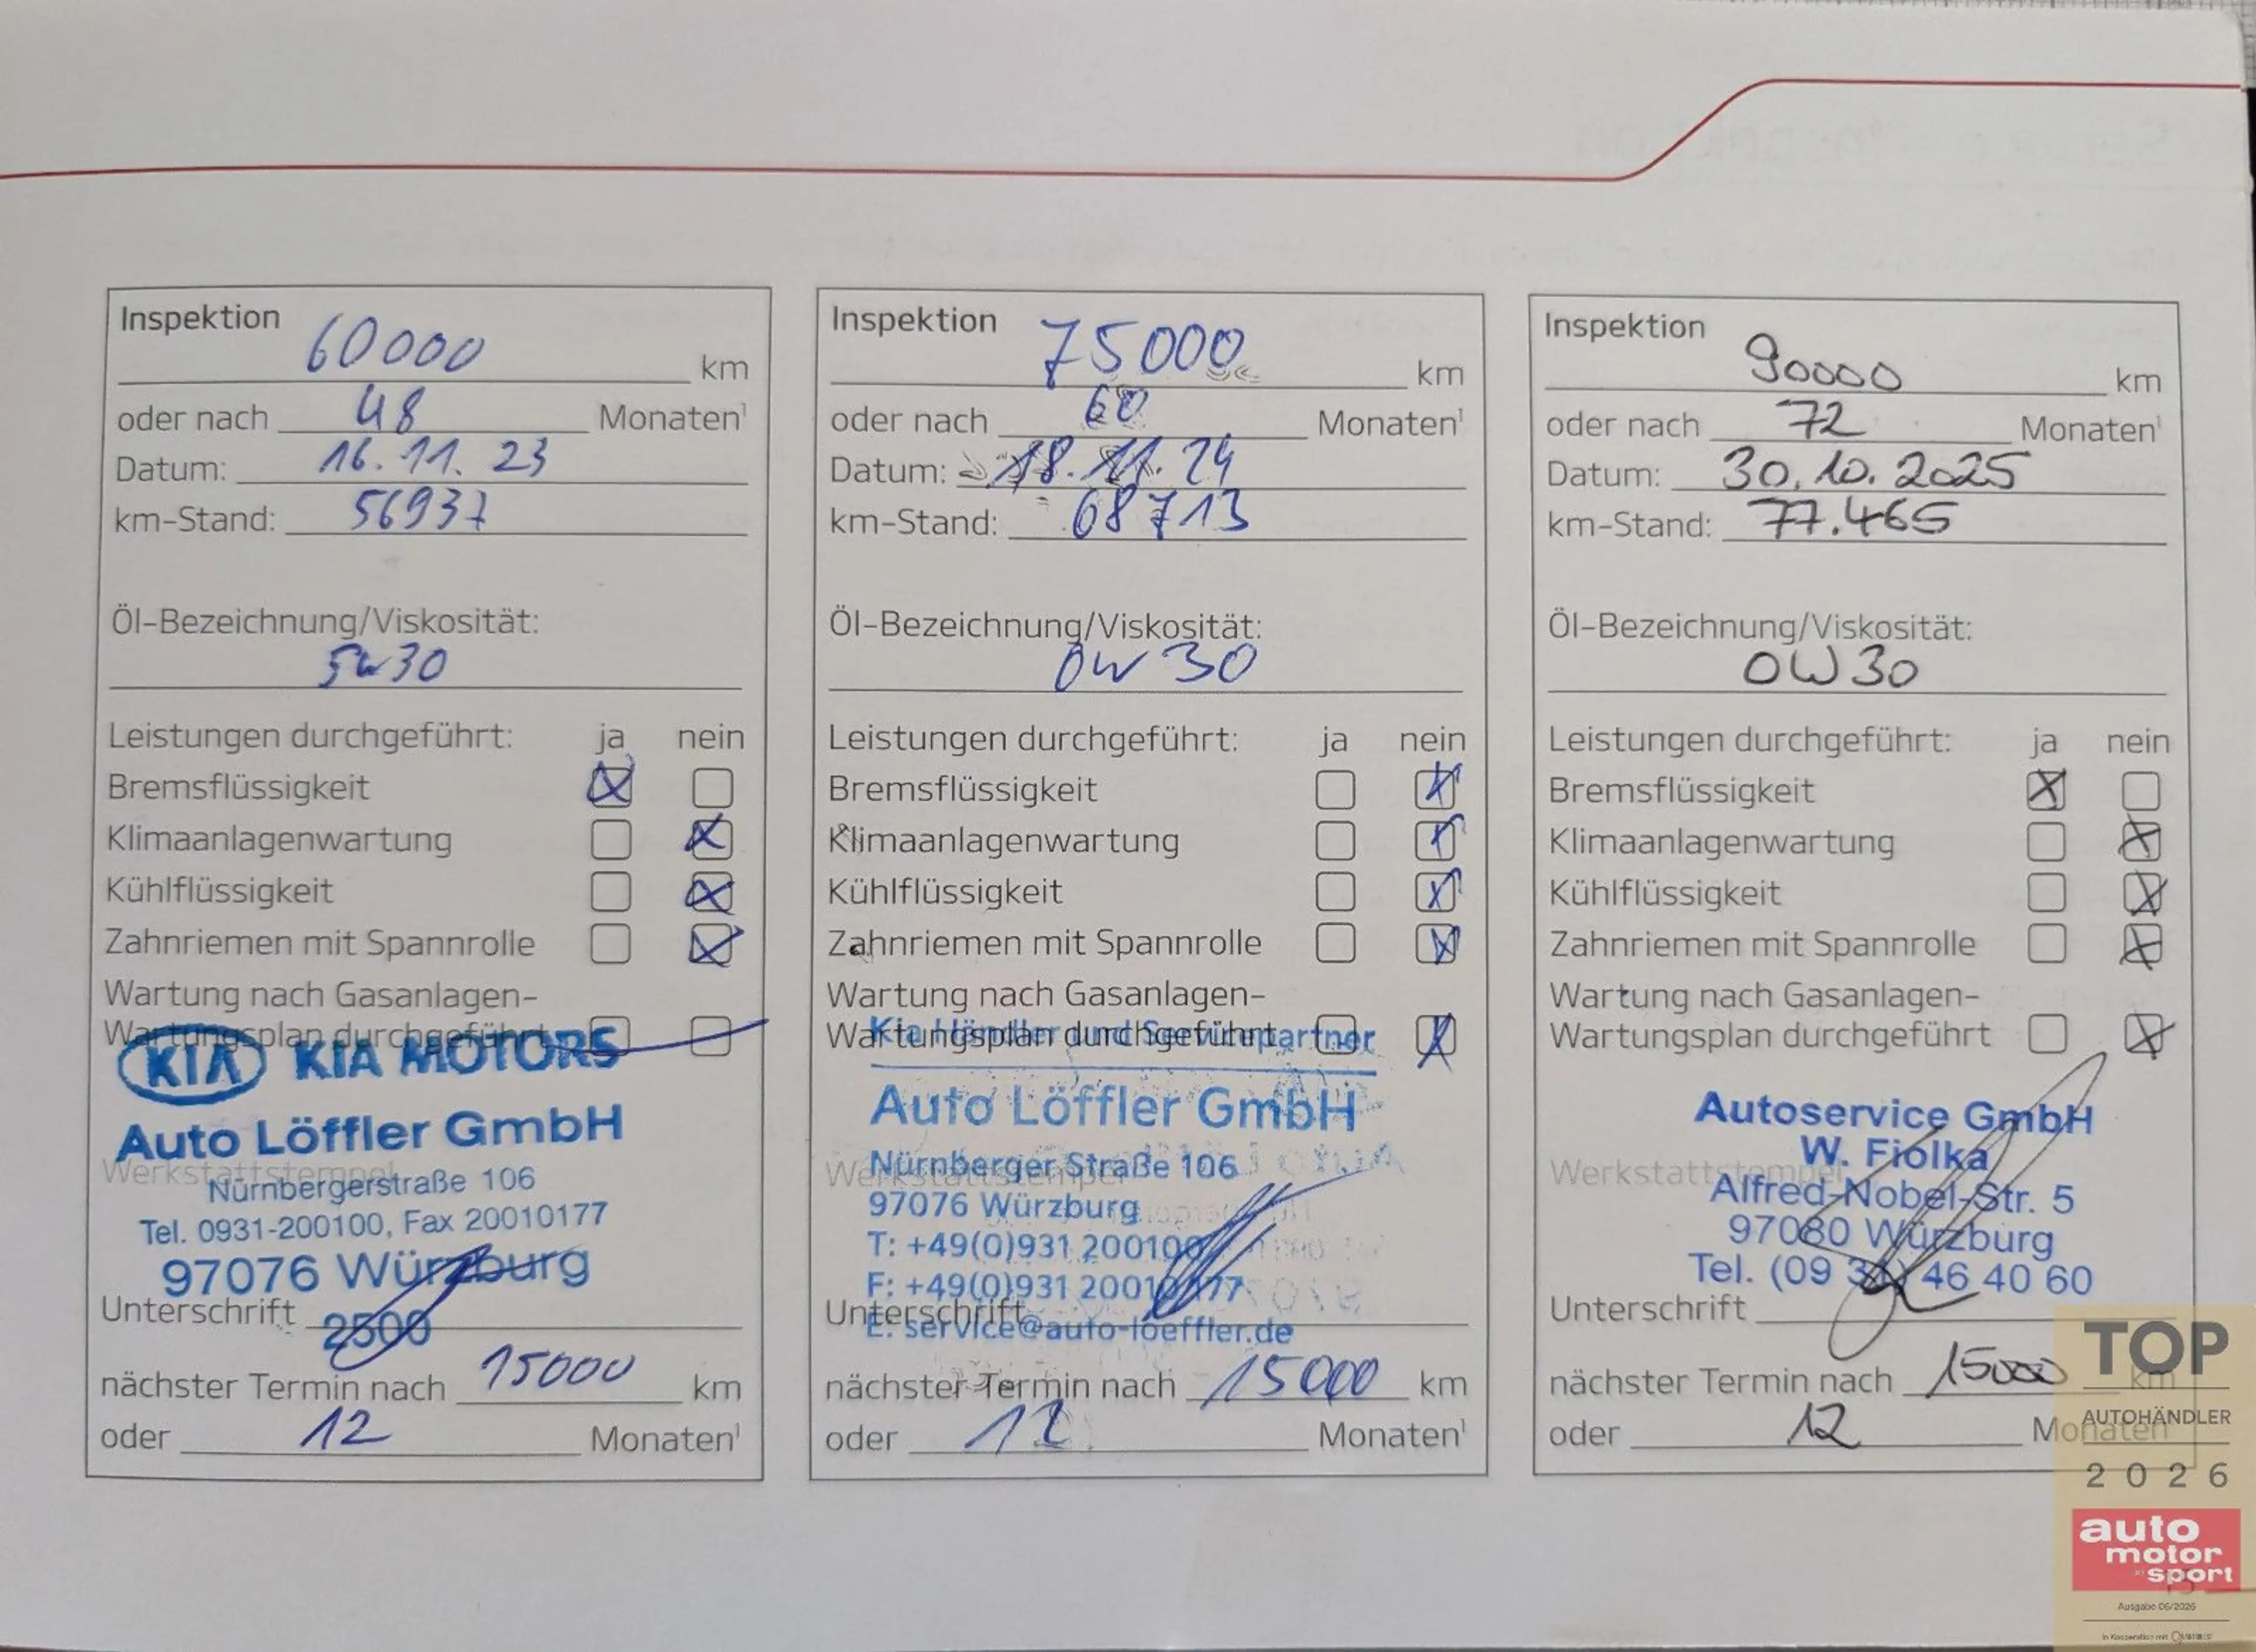 Inspektion 60000 km
oder nach 48 Monaten¹
Datum: 16.11.23
km-Stand: 56937
Öl-Bezeichnung/Viskosität:
5W30
Leistungen durchgeführt: ja nein
Bremsflüssigkeit
Klimaanlagenwartung
Kühlflüssigkeit
Zahnriemen mit Spannrolle
Wartung nach Gasanlagen-
Wartungsplan durchgeführt
KIA KIA MOTORS
Auto Löffler GmbH
Werkstattstempel
Nürnbergerstraße 106
Tel. 0931-200100, Fax 20010177
97076 Würzburg
Unterschrift
2500
nächster Termin nach 15000 km
oder 12 Monaten¹
Inspektion 75000 km
oder nach 60 Monaten¹
Datum: 18.11.24
km-Stand: 68713
Öl-Bezeichnung/Viskosität:
0W30
Leistungen durchgeführt: ja nein
Bremsflüssigkeit
Klimaanlagenwartung
Kühlflüssigkeit
Zahnriemen mit Spannrolle
Wartung nach Gasanlagen-
Wartungsplan durchgeführt
Kia Händler und Servicepartner
Auto Löffler GmbH
Werkstattstempel
Nürnberger Straße 106
97076 Würzburg
T: +49(0)931 200100
F: +49(0)931 20010177
Unterschrift
E: service@auto-loeffler.de
nächster Termin nach 15000 km
oder 12 Monaten¹
Inspektion 90000 km
oder nach 72 Monaten¹
Datum: 30.10.2025
km-Stand: 77.465
Öl-Bezeichnung/Viskosität:
0W30
Leistungen durchgeführt: ja nein
Bremsflüssigkeit
Klimaanlagenwartung
Kühlflüssigkeit
Zahnriemen mit Spannrolle
Wartung nach Gasanlagen-
Wartungsplan durchgeführt
Autoservice GmbH
W. Fiolka
Werkstattstempel
Alfred-Nobel-Str. 5
97080 Würzburg
Tel. (09 31) 46 40 60
Unterschrift
nächster Termin nach 15000 km
oder 12 Monaten
TOP
AUTOHÄNDLER
2026
auto
motor
sport
Ausgabe 06/2026
In Kooperation mit